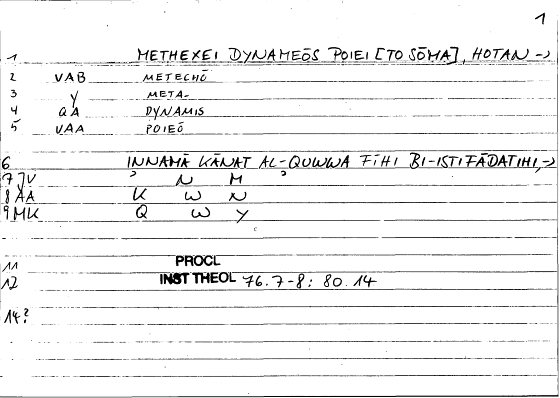 1
1 METHEXEI DYNAMEŌS POIEI [TO SŌMA], HOTAN →
2 VAB METECHŌ
3 Y META-
4 QA DYNAMIS
5 VAA POIEŌ
6 INNAMĀ KĀNAT AL-QUWWA FĪHI BI-ISTIFĀDATIHI, →
7 JV ʾ N M ʾ
8 AA K W N
9 MK Q W Y
11 PROCL
12 INST THEOL 76.7-8: 80.14
14?